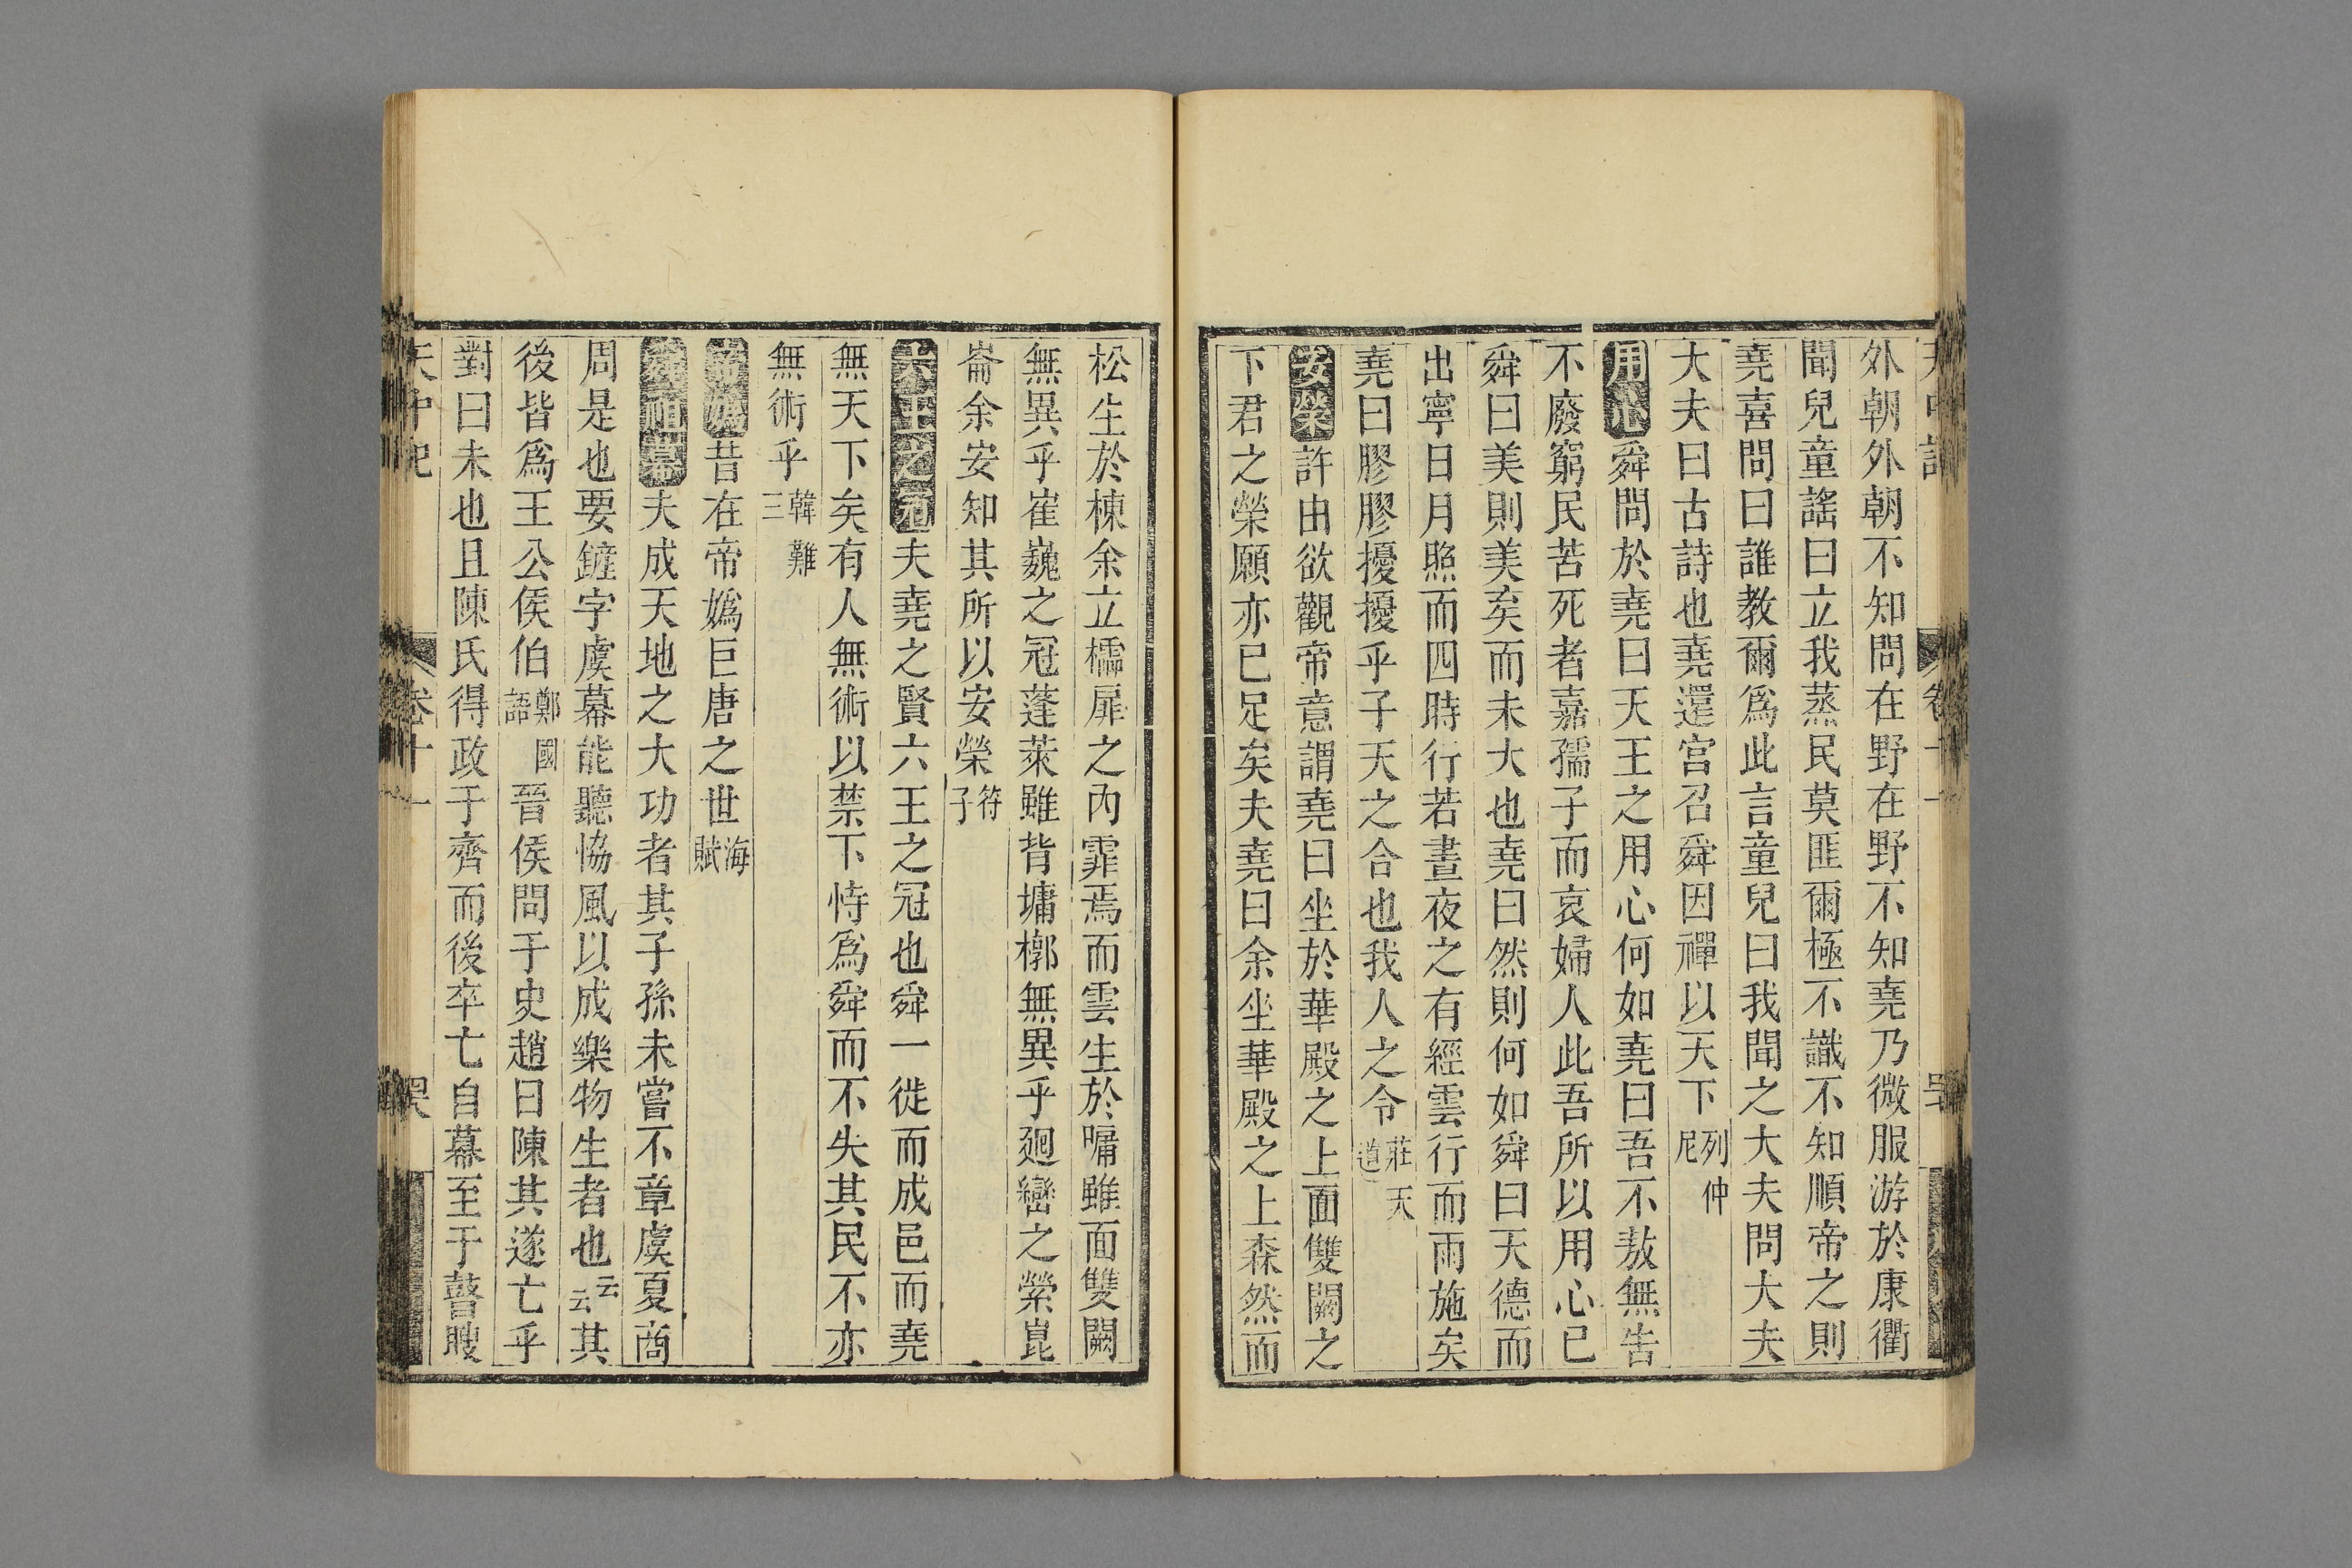 外朝外朝不知問在野在野不知堯乃微服游於康衢
聞兒童謠曰立我蒸民莫匪爾極不識不知順帝之則
堯喜問曰誰教爾爲此言童兒曰我聞之大夫問大夫
大夫曰古詩也堯還宮召舜因禪以天下列仲尼
用心舜問於堯曰天王之用心何如堯曰吾不敖無告
不廢窮民苦死者嘉孺子而哀婦人此吾所以用心已
舜曰美則美矣而未大也堯曰然則何如舜曰天德而
出寧日月照而四時行若晝夜之有經雲行而雨施矣
堯曰膠膠擾擾乎子天之合也我人之令莊天道
安榮許由欲觀帝意謂堯曰坐於華殿之上面雙闕之
下君之榮願亦已足矣夫堯曰余坐華殿之上森然而
松生於棟余立櫺扉之內霏焉而雲生於牗雖面雙闕
無異乎崔巍之冠蓬萊雖背墉槨無異乎廻巒之縈崑
崙余安知其所以安榮符子
六王之冠夫堯之賢六王之冠也舜一徙而成邑而堯
無天下矣有人無術以禁下恃爲舜而不失其民不亦
無術乎韓難三
昔在帝嬀巨唐之世海賦
幕夫成天地之大功者其子孫未嘗不章虞夏商
周是也要鏟字虞幕能聽恊風以成樂物生者也云云其
後皆爲王公侯伯鄭國語晉侯問于史趙曰陳其遂亡乎
對曰未也且陳氏得政于齊而後卒亡自幕至于瞽瞍
天中記 卷十一